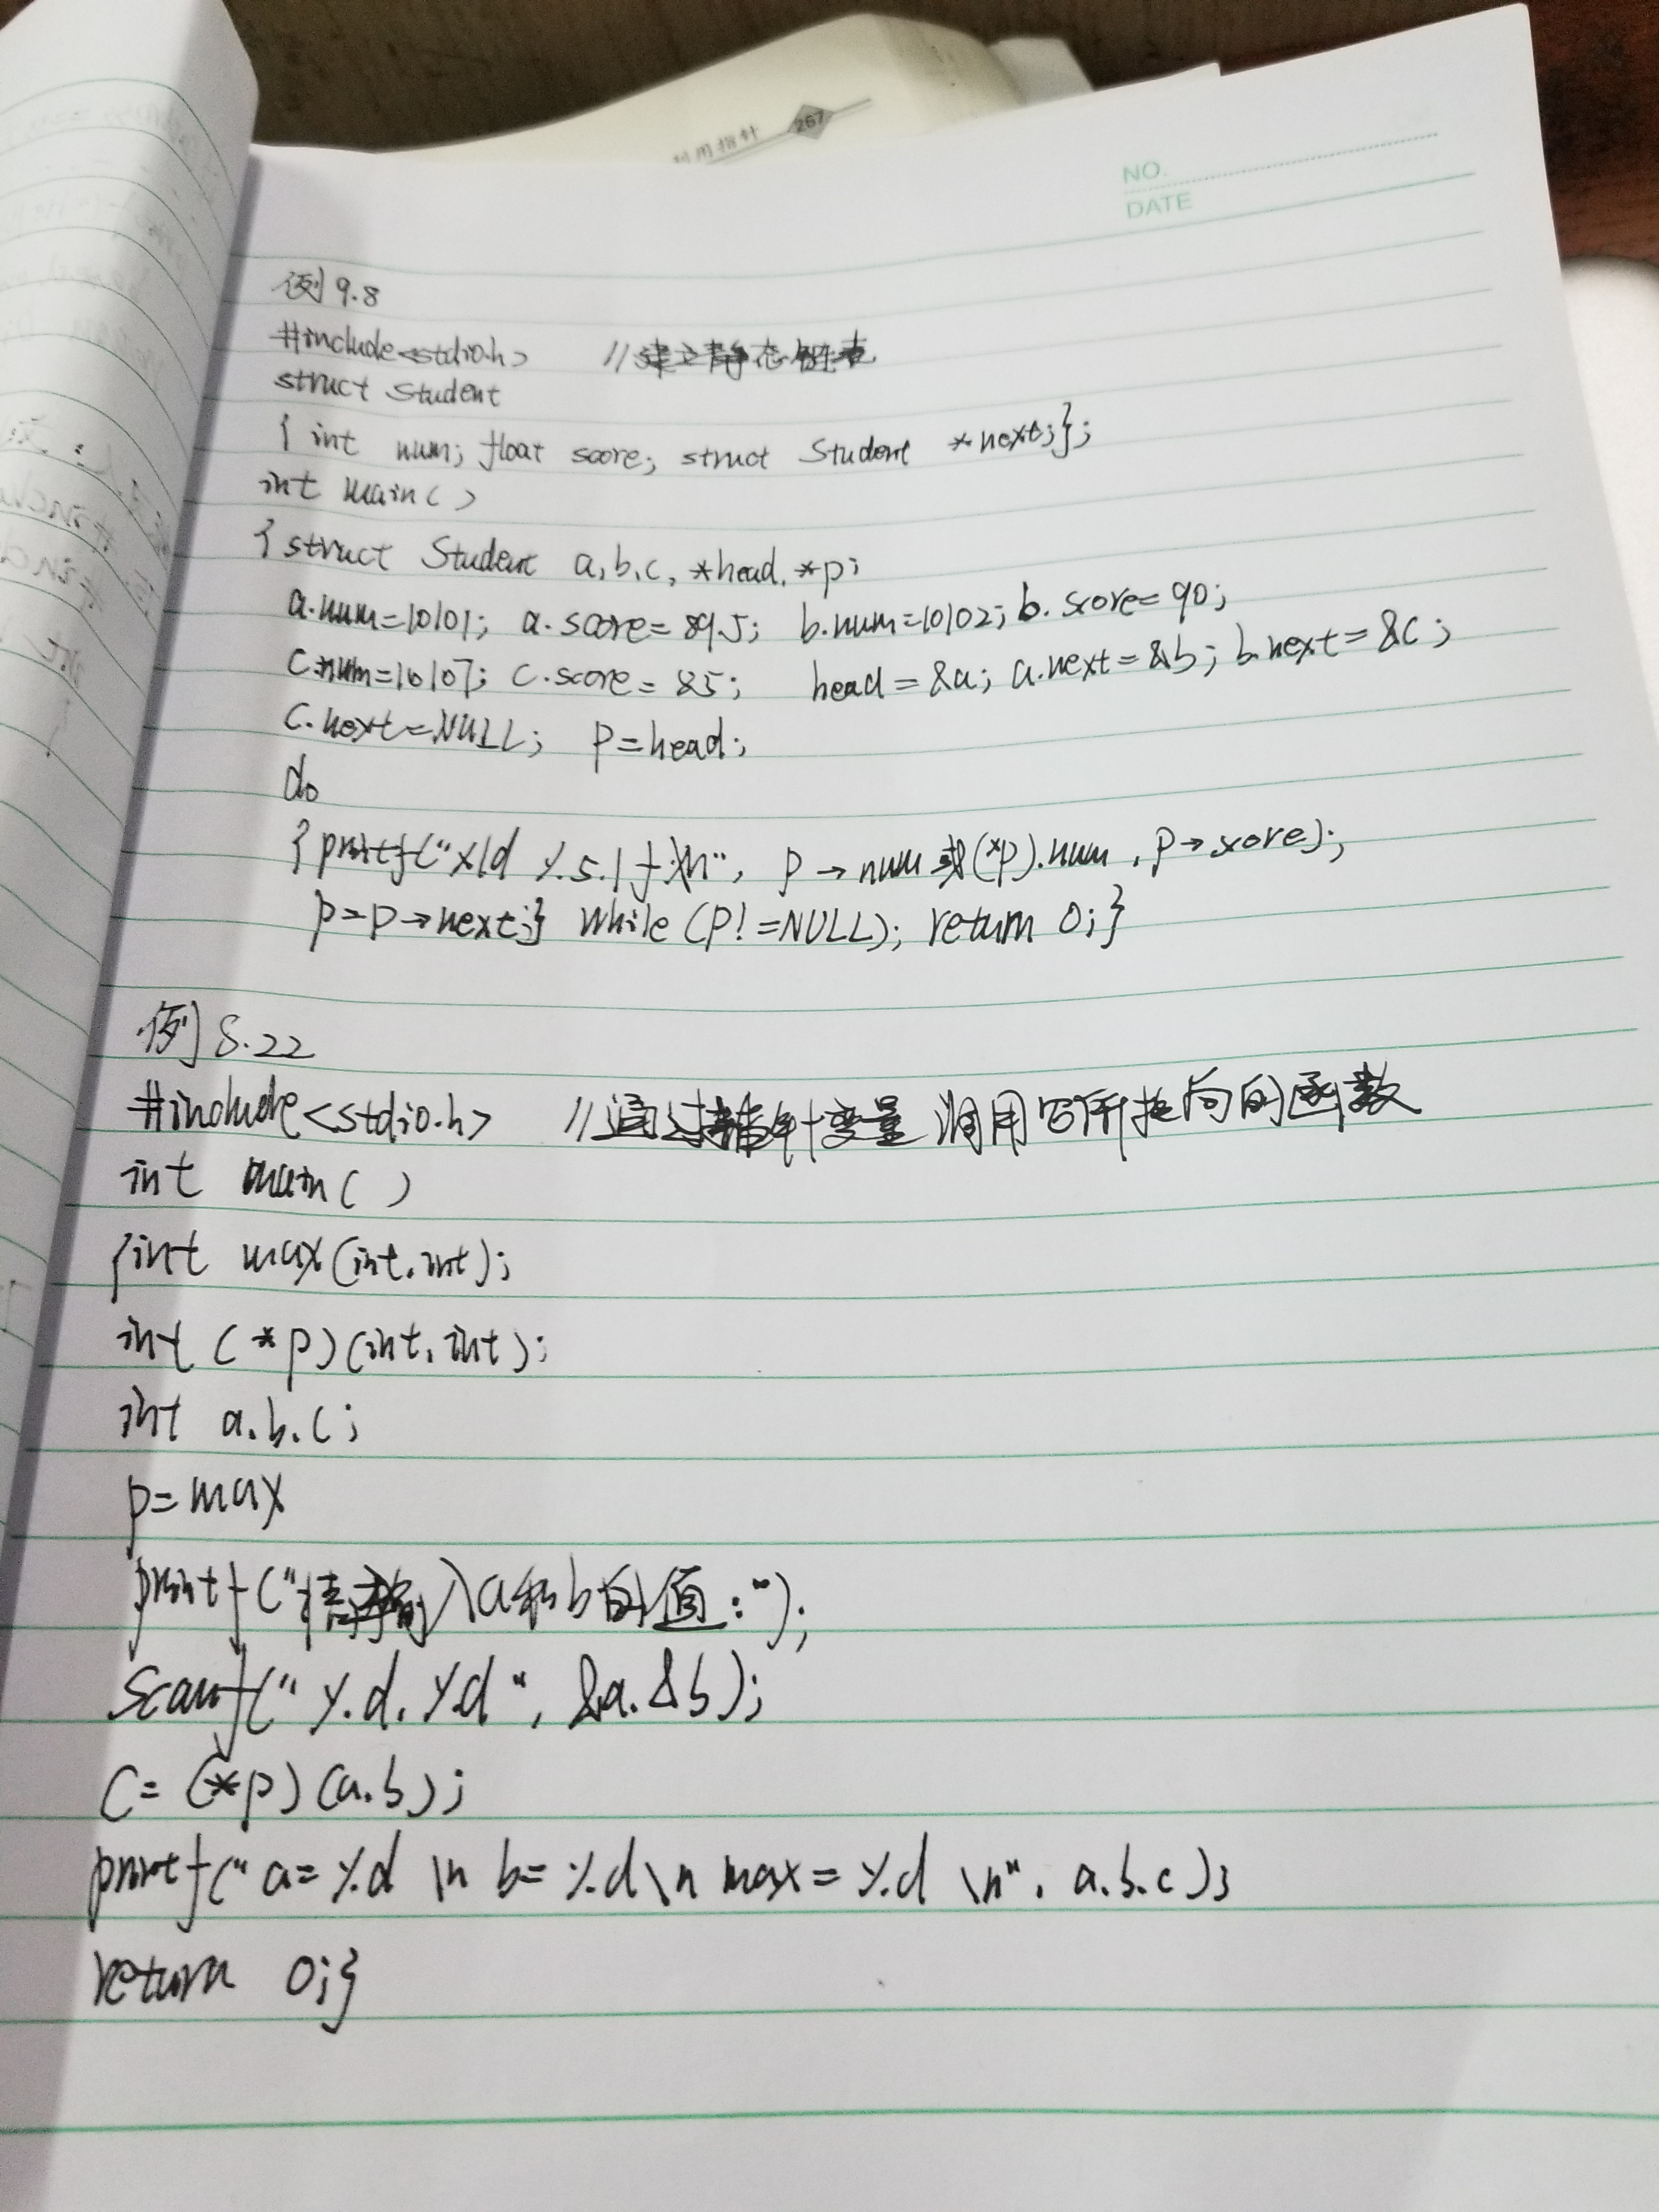 利用指针 267
NO.
DATE
例9.8
#include<stdio.h> //建立静态链表
struct Student
{ int num; float score; struct Student *next;};
int main( )
{struct Student a,b,c, *head, *p;
a.num=10101; a.score=89.5; b.num=10102; b.score=90;
c.num=10107; c.score=85; head=&a; a.next=&b; b.next=&c;
c.next=NULL; p=head;
do
{printf("%d %5.1f\n", p→num或(*p).num, p→score);
p=p→next;} while(p!=NULL); return 0;}
例8.22
#include<stdio.h> //通过指针变量调用它所指向的函数
int main( )
{int max(int,int);
int (*p)(int,int);
int a,b,c;
p=max
printf("请输入a和b的值:");
scanf("%d,%d", &a,&b);
c=(*p)(a,b);
printf("a=%d \n b=%d\n max=%d \n", a,b,c);
return 0;}